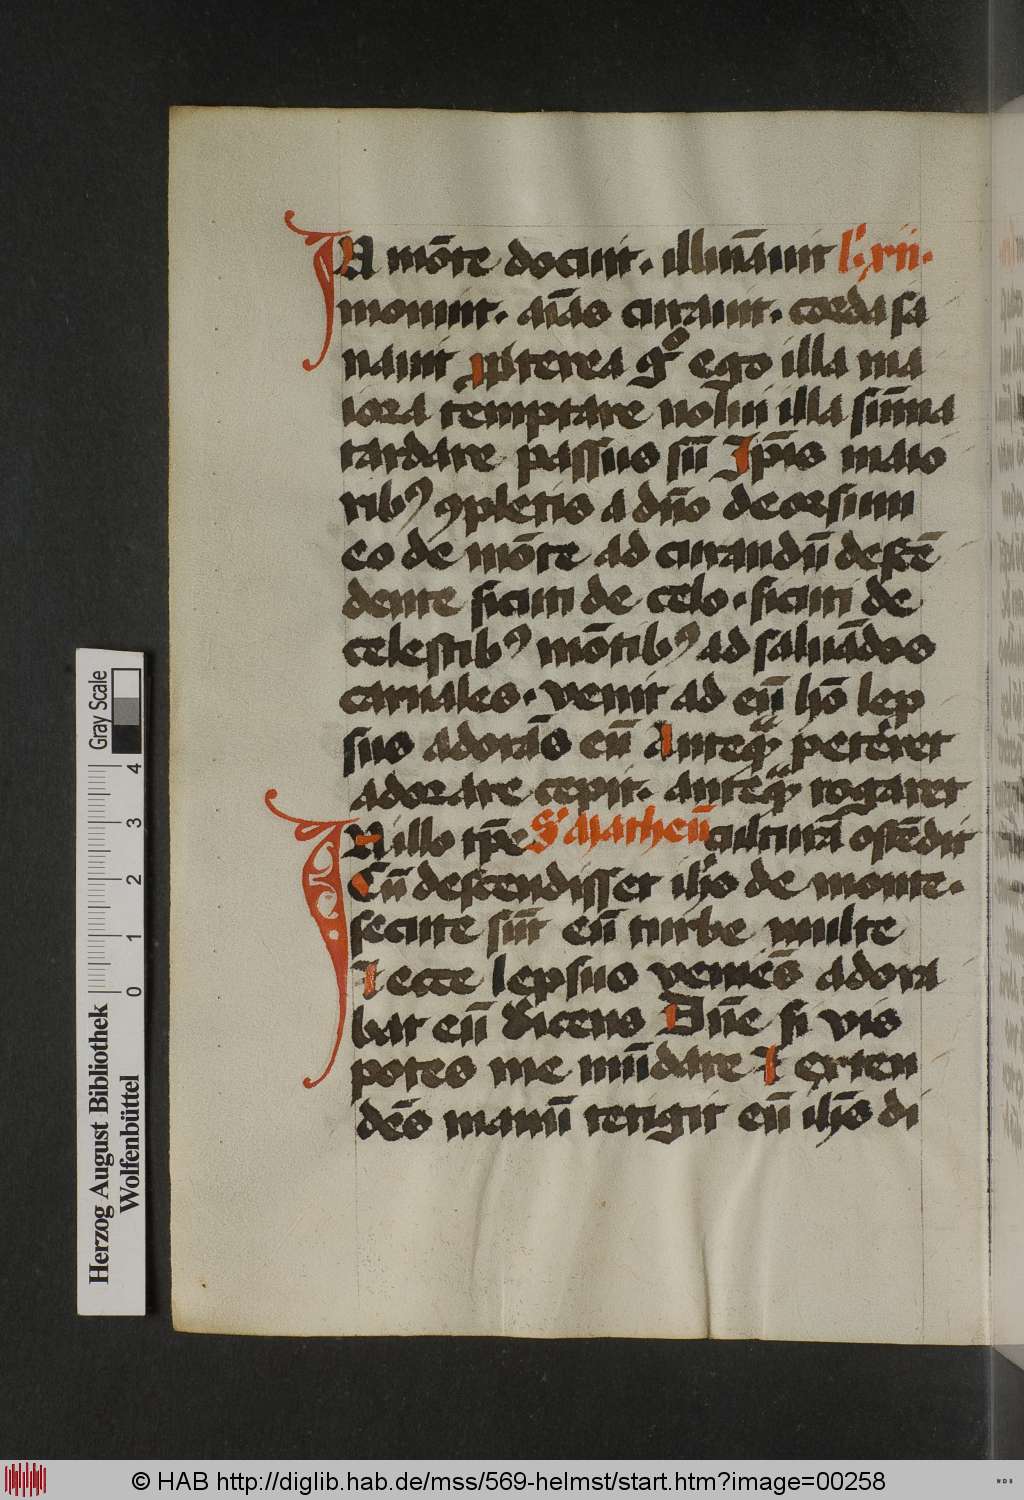 IN mōte docuit. illuīauit lc̄. xii.
monuit. aīas curauit. corda sa
nauit Propterea gͦ ego illa ma
iora temptare nolui illa sūma
tardare passus sū Ip̄is maio
ribꝰ ꝯpletis a dn̄o deorsum
eo de mōte ad curandū descē
dente sicuti de celo. sicuti de
celestibꝰ mōtibꝰ ad saluādos
carnales. venit ad eū hō lep
sus adorās eū Anteqͣ peteret
adorare cepit. anteqͣ rogaret
IN illo tp̄e S Matheū culturā ostēdit
Cū descendisset ih̄s de monte.
secute sūt eū turbe multe
⁊ ecce lepsus veniēs adora
bat eū dicens Dn̄e si vis
potes me mūdare ⁊ exten
dēs manū tetigit eū ih̄s di
Gray Scale
4
3
2
1
0
Herzog August Bibliothek
Wolfenbüttel
© HAB http://diglib.hab.de/mss/569-helmst/start.htm?image=00258